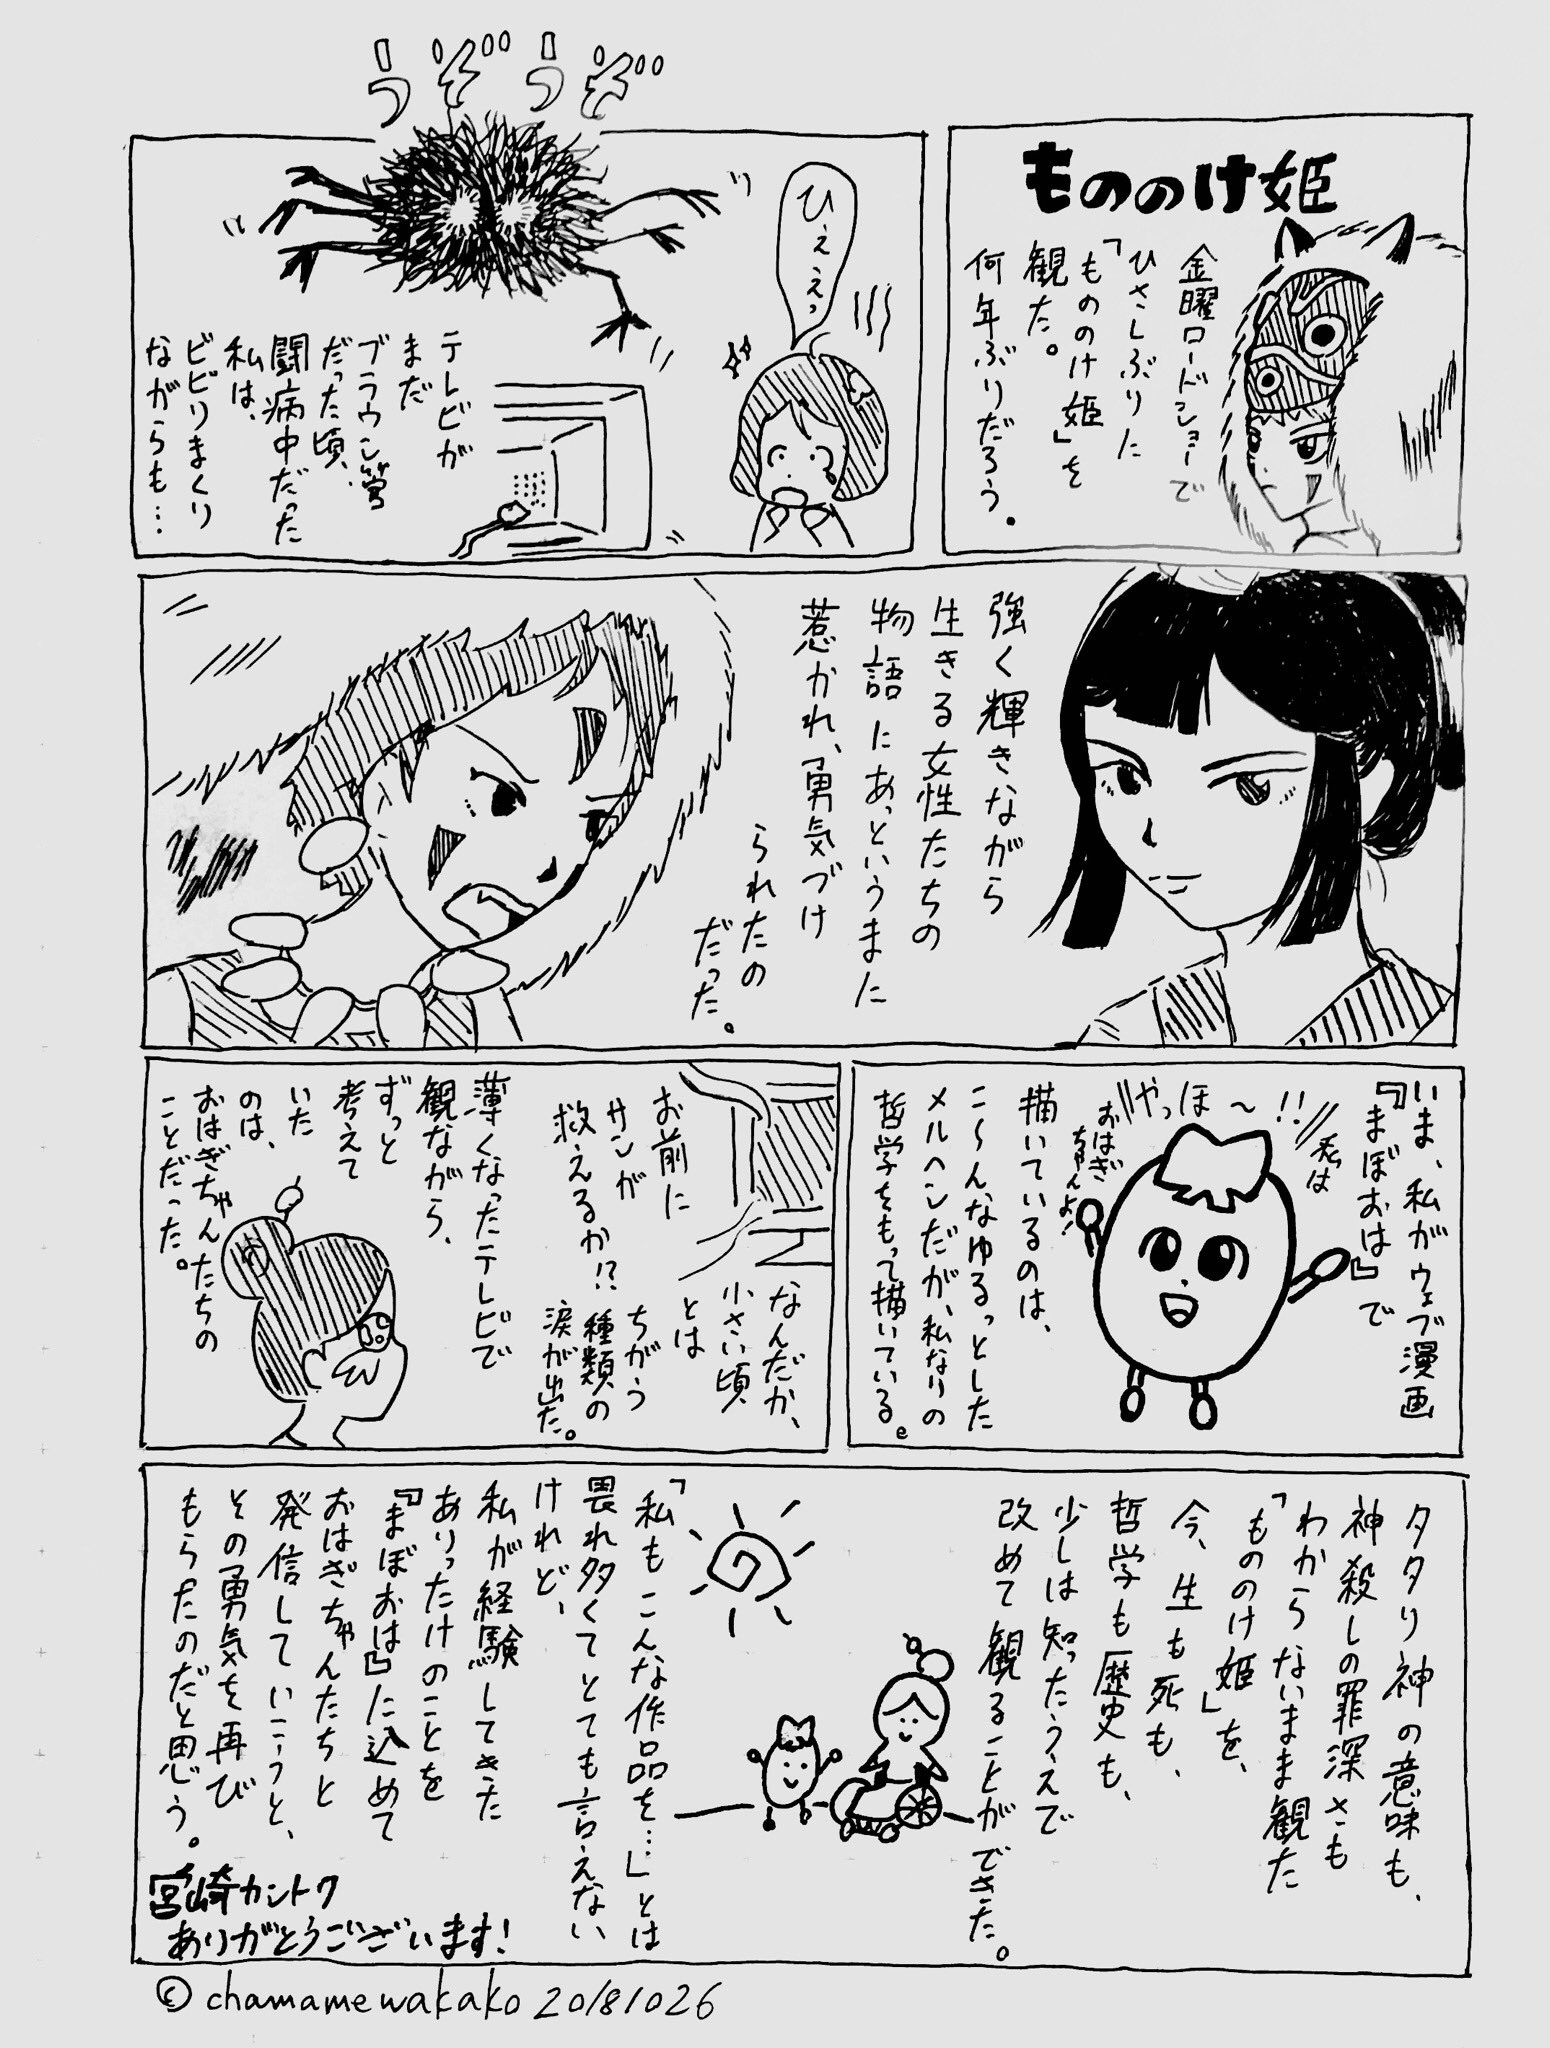 もののけ姫
金曜ロードショーで
ひさしぶりた
「もののけ姫」を
観た。
何年ぶりだろう。
うぞうぞ
ひぇぇっ
テレビが
まだ
ブラウン管
だった頃、
闘病中だった
私は、
ビビりまくり
ながらも…
強く輝きながら
生きる女性たちの
物語にあっというまに
惹かれ、勇気づけ
られたの
だった。
いま、私がウェブ漫画
『まぼおは』で
やっほ〜!!
私は
おはぎ
ちゃんよ!
描いているのは、
こ〜んなゆるっとした
メルヘンだが、私なりの
哲学をもって描いている。
お前に
サンが
救えるか!?
なんだか、
小さい頃
とは
ちがう
種類の
涙が出た。
薄くなったテレビで
観ながら、
ずっと
考えて
いた
のは、
おはぎちゃんたちの
ことだった。
タタリ神の意味も、
神殺しの罪深さも
わからないまま観た
「もののけ姫」を、
今、生も死も、
哲学も歴史も、
少しは知ったうえで
改めて観ることができた。
「私もこんな作品を…」とは
畏れ多くてとても言えない
けれど、
私が経験してきた
ありったけのことを
『まぼおは』に込めて
おはぎちゃんたちと
発信していこうと、
その勇気を再び
もらったのだと思う。
宮崎カントク
ありがとうございます!
© chamamewakako 20181026